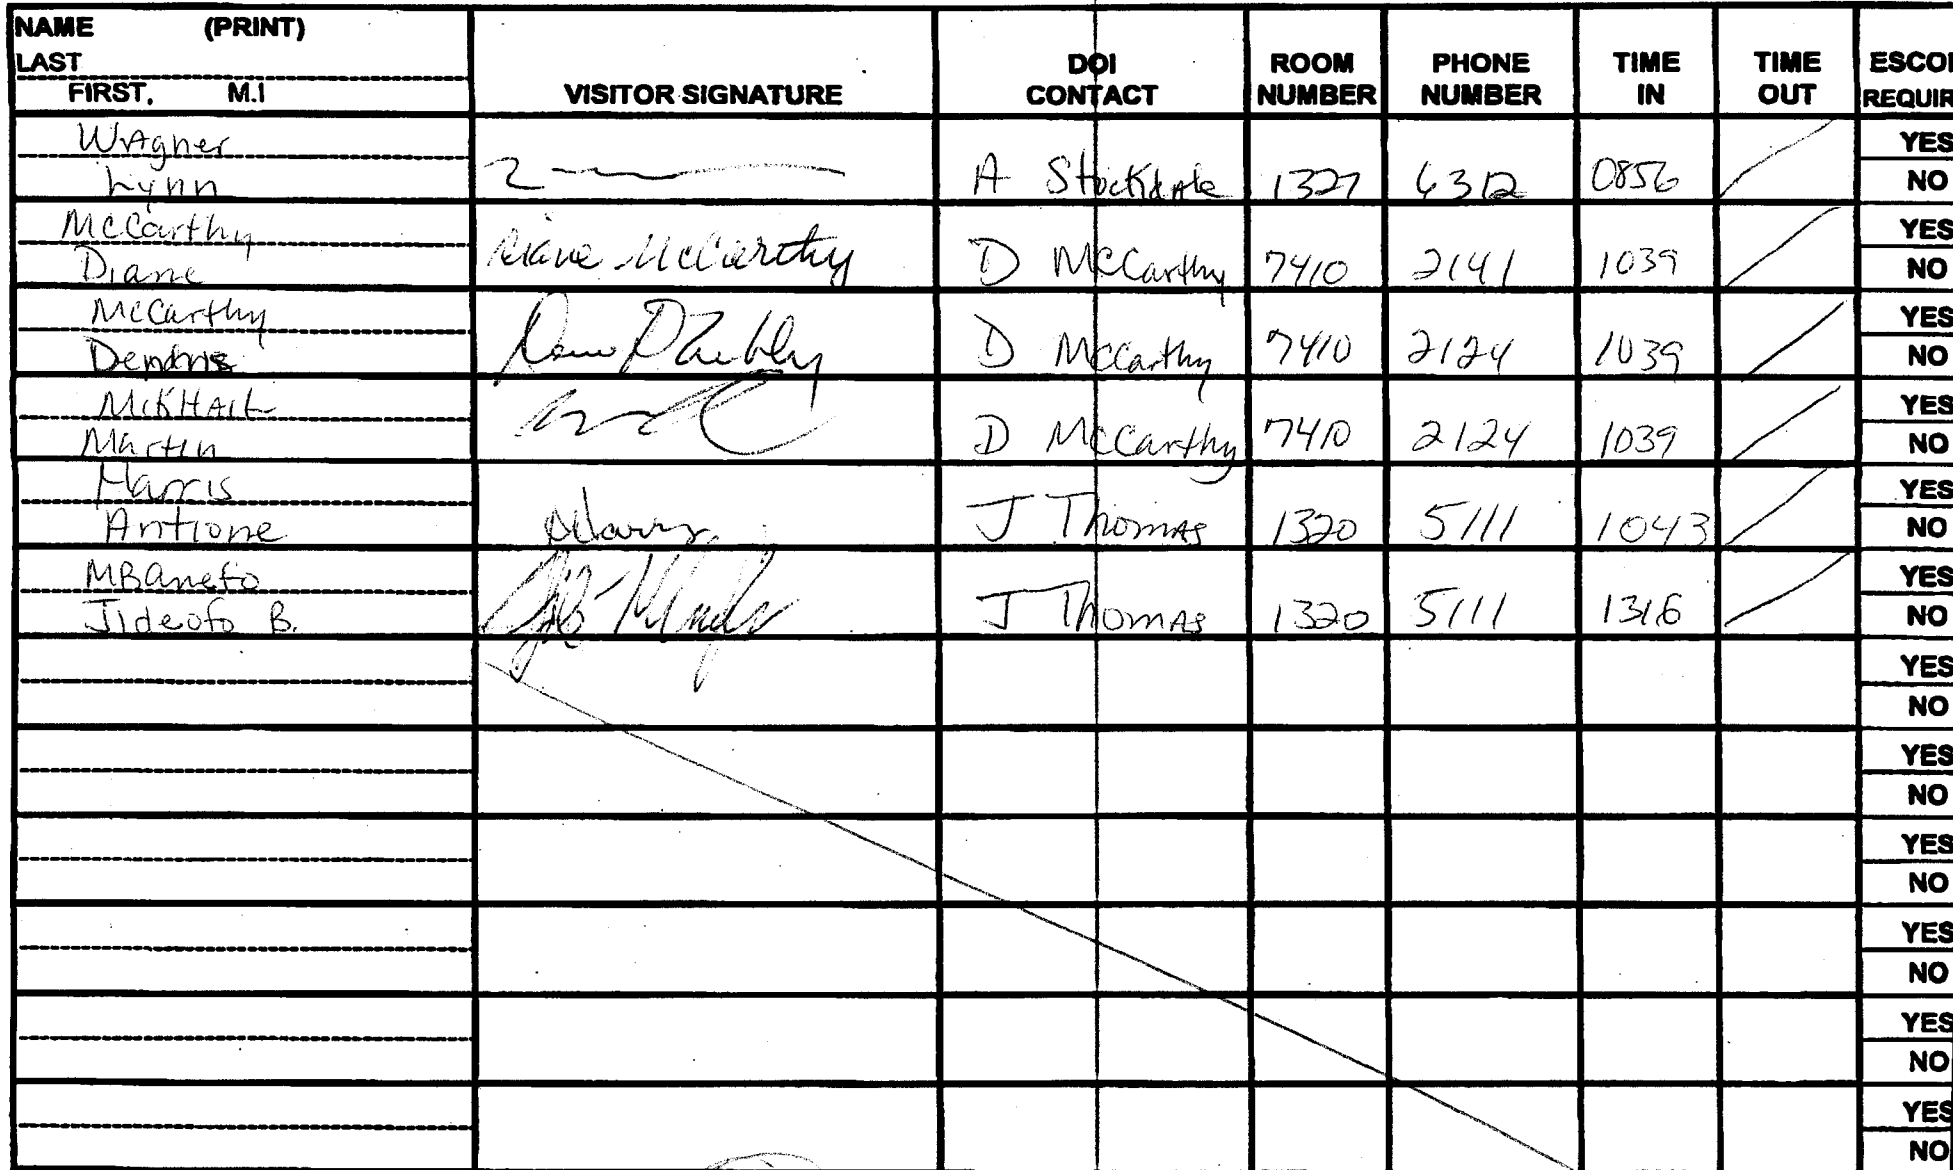 NAME (PRINT)
LAST
FIRST, M.I
VISITOR SIGNATURE
DOI
CONTACT
ROOM
NUMBER
PHONE
NUMBER
TIME
IN
TIME
OUT
ESCO
REQUIR
Wagner
Lynn
A Stockdale 1327 6312 0856
YES
NO
McCarthy
Diane
Diane McCarthy
D McCarthy 7410 2141 1039
YES
NO
McCarthy
Dennis
D McCarthy 7410 2124 1039
YES
NO
MIKHAIL
Martin
D McCarthy 7410 2124 1039
YES
NO
Harris
Antione
J Thomas 1320 5111 1043
YES
NO
MBanefo
Jideofo B.
J Thomas 1320 5111 1316
YES
NO
YES
NO
YES
NO
YES
NO
YES
NO
YES
NO
YES
NO